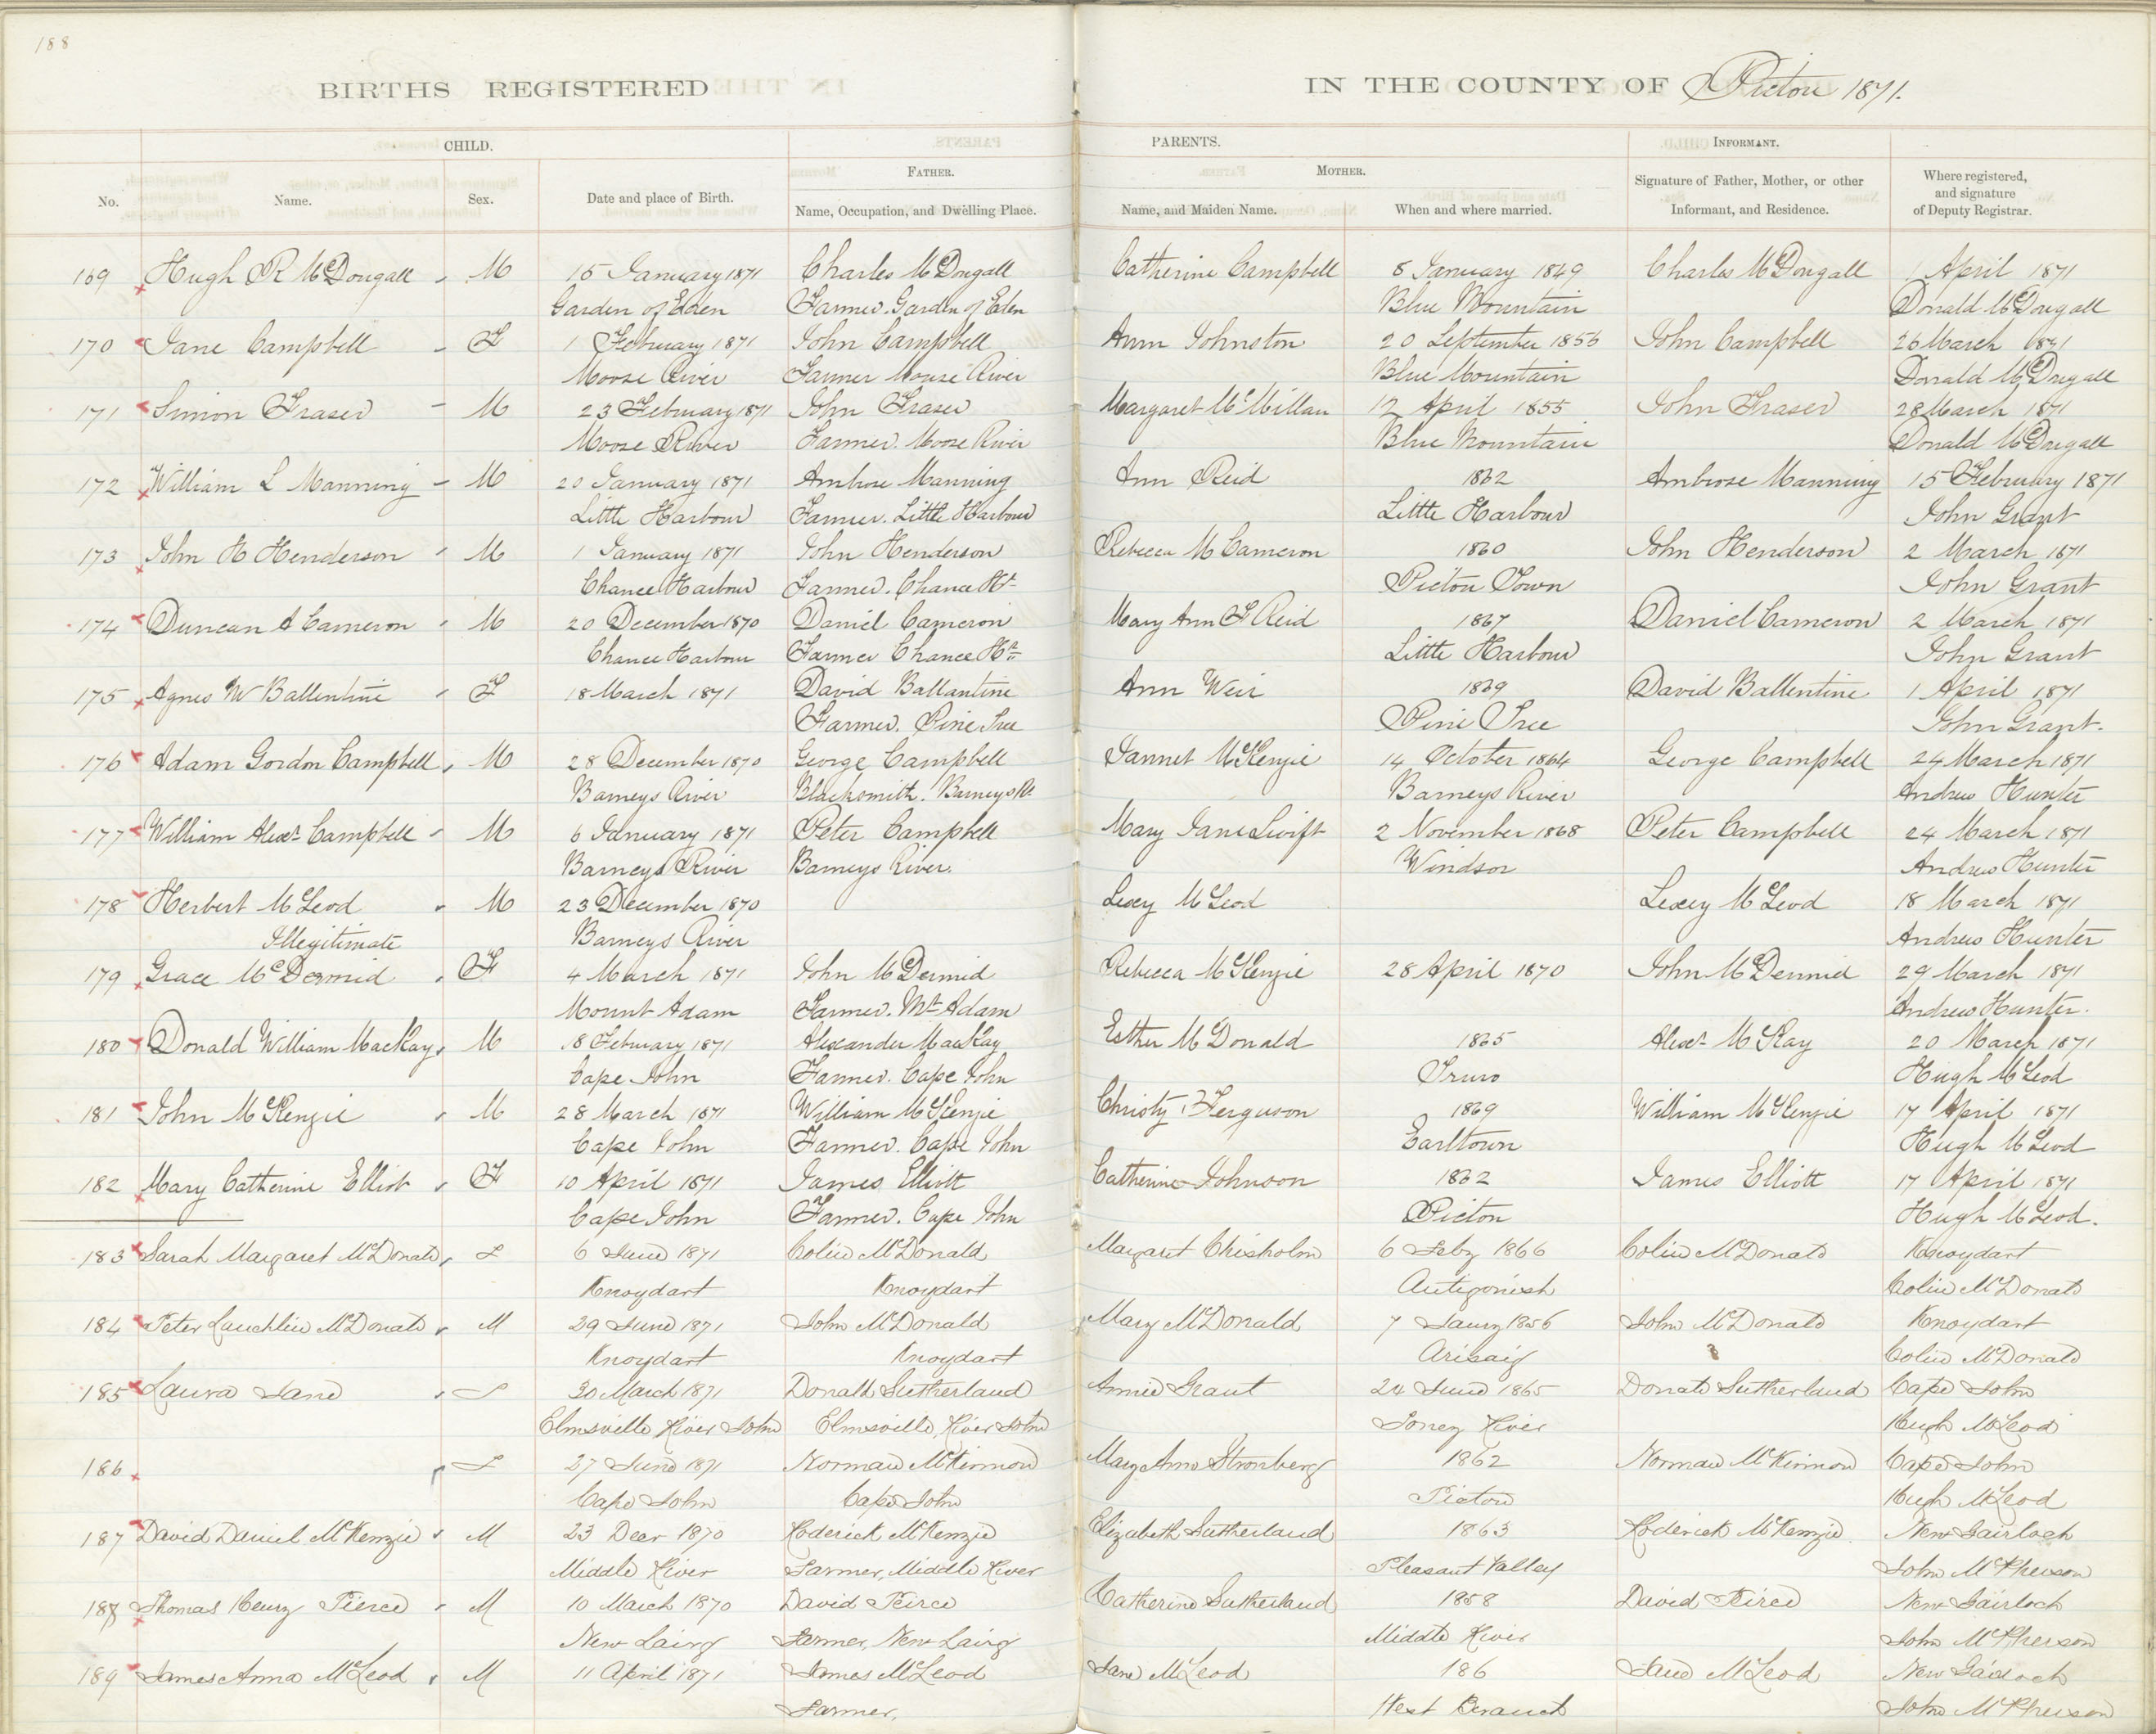 188
BIRTHS REGISTERED
IN THE COUNTY OF Pictou 1871.
CHILD.
PARENTS.
INFORMANT.
FATHER.
MOTHER.
No.
Name.
Sex.
Date and place of Birth.
Name, Occupation, and Dwelling Place.
Name, and Maiden Name.
When and where married.
Signature of Father, Mother, or other
Informant, and Residence.
Where registered,
and signature
of Deputy Registrar.
169 Hugh R McDougall M 15 January 1871 Charles McDougall Catherine Campbell 8 January 1849 Charles McDougall 1 April 1871
Garden of Eden Farmer. Garden of Eden Blue Mountain Donald McDougall
170 Jane Campbell F 1 February 1871 John Campbell Ann Johnston 20 September 1856 John Campbell 26 March 1871
Moose River Farmer Moose River Blue Mountain Donald McDougall
171 Simon Fraser M 23 February 1871 John Fraser Margaret McMillan 12 April 1855 John Fraser 28 March 1871
Moose River Farmer. Moose River Blue Mountain Donald McDougall
172 William L Manning M 20 January 1871 Ambrose Manning Ann Reid 1862 Ambrose Manning 15 February 1871
Little Harbour Farmer. Little Harbour Little Harbour John Grant
173 John H Henderson M 1 January 1871 John Henderson Rebecca McCameron 1860 John Henderson 2 March 1871
Chance Harbour Farmer. Chance Hr Pictou Town John Grant
174 Duncan A Cameron M 20 December 1870 Daniel Cameron Mary Ann F Reid 1867 Daniel Cameron 2 March 1871
Chance Harbour Farmer Chance Hr Little Harbour John Grant
175 Agnes W Ballentine F 18 March 1871 David Ballantine Ann Weir 1869 David Ballentine 1 April 1871
Farmer. Pine Tree Pine Tree John Grant.
176 Adam Gordon Campbell M 28 December 1870 George Campbell Jannet McKenzie 14 October 1864 George Campbell 24 March 1871
Barneys River Blacksmith. Barneys R. Barneys River Andrew Hunter
177 William Alexr Campbell M 6 January 1871 Peter Campbell Mary Jane Swift 2 November 1868 Peter Campbell 24 March 1871
Barneys River Barneys River. Windsor Andrew Hunter
178 Herbert McLeod M 23 December 1870 Lexey McLeod Lexey McLeod 18 March 1871
Illegitimate Barneys River Andrew Hunter
179 Grace McDermid F 4 March 1871 John McDermid Rebecca McKenzie 28 April 1870 John McDermid 29 March 1871
Mount Adam Farmer. Mt Adam Andrew Hunter.
180 Donald William MacKay M 8 February 1871 Alexander MacKay Esther McDonald 1865 Alexr McKay 20 March 1871
Cape John Farmer. Cape John Truro Hugh McLeod
181 John McKenzie M 28 March 1871 William McKenzie Christy Ferguson 1869 William McKenzie 17 April 1871
Cape John Farmer. Cape John Earltown Hugh McLeod
182 Mary Catherine Elliot F 10 April 1871 James Elliott Catherine Johnson 1862 James Elliott 17 April 1871
Cape John Farmer. Cape John Pictou Hugh McLeod.
183 Sarah Margaret McDonald F 6 June 1871 Colin McDonald Margaret Chisholm 6 Feby 1866 Colin McDonald Knoydart
Knoydart Knoydart Antigonish Colin McDonald
184 Peter Lauchlin McDonald M 29 June 1871 John McDonald Mary McDonald 7 Jany 1856 John McDonald Knoydart
Knoydart Knoydart Arisaig Colin McDonald
185 Laura Jane F 30 March 1871 Donald Sutherland Annie Grant 24 June 1865 Donald Sutherland Cape John
Elmsville River John Elmsville, River John Toney River Hugh McLeod
186 F 27 June 1871 Norman McKinnon Mary Ann Stromberg 1862 Norman McKinnon Cape John
Cape John Cape John Pictou Hugh McLeod
187 David Daniel McKenzie M 23 Decr 1870 Roderick McKenzie Elizabeth Sutherland 1863 Roderick McKenzie New Gairloch
Middle River Farmer, Middle River Pleasant Valley John McPherson
188 Thomas Henry Pierce M 10 March 1870 David Peirce Catherine Sutherland 1858 David Peirce New Gairloch
New Lairg Farmer, New Lairg Middle River John McPherson
189 James Anna McLeod M 11 April 1871 James McLeod Jane McLeod 186 Jane McLeod New Gairloch
Farmer, West Branch John McPherson